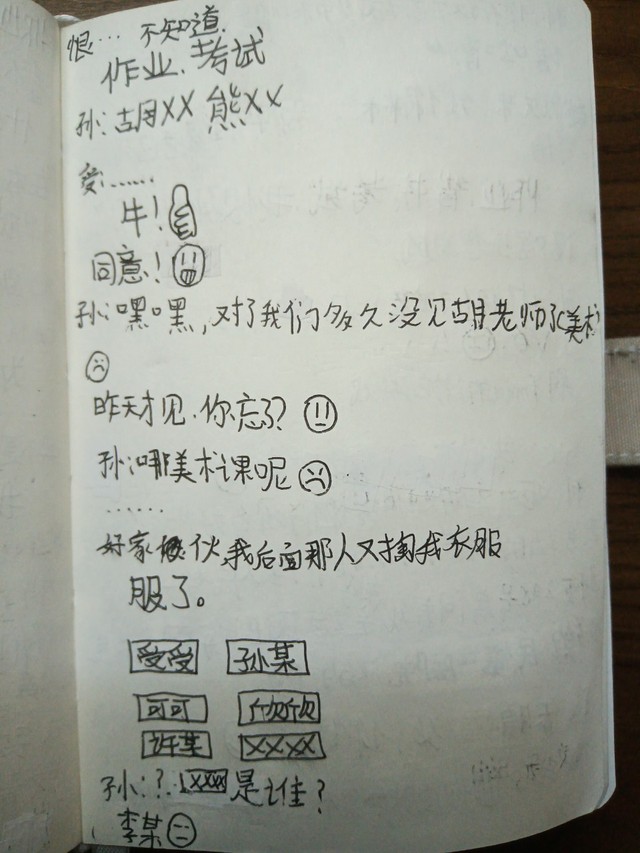 恨… 不知道.
作业.考试
孙:胡XX 熊XX
受:……
牛!
同意!
孙:嘿嘿,对了我们多久没见胡老师了(美术
昨天才见.你忘了?
孙:哪美术课呢
……
好家伙,我后面那人又掏我衣服
服了。
受受 孙某
可可 欣欣
许某 XXXX
孙:?.XXX是谁?
李某